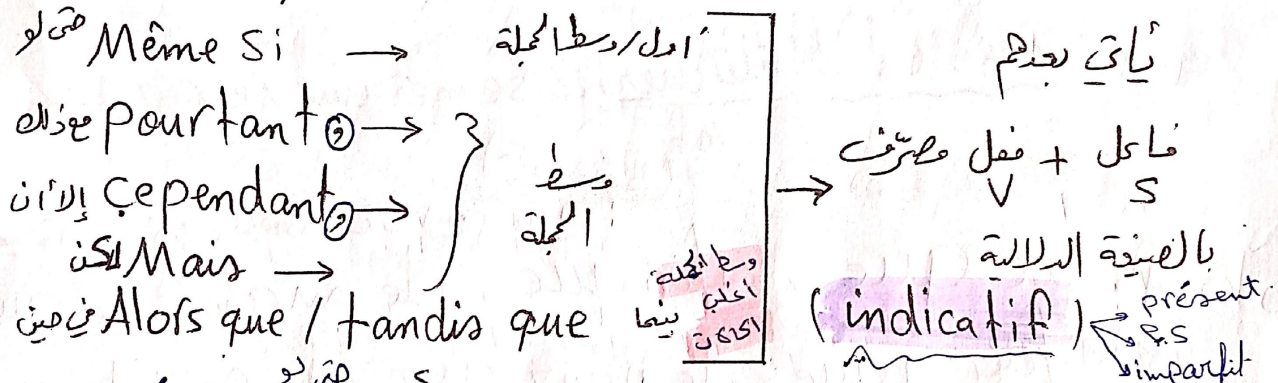 حتى لو Même si → أول/وسط الجملة
مع ذلك pourtant , →
إلا أن Cependant , → وسط الجملة
لكن Mais →
في حين Alors que / tandis que بينما
وسط الجملة
أغلب
يأتي بعدهم
فاعل + فعل مصرّف
S V
بالصيغة الدلالية
(indicatif)
présent
P.S
imparfit
حتى لو